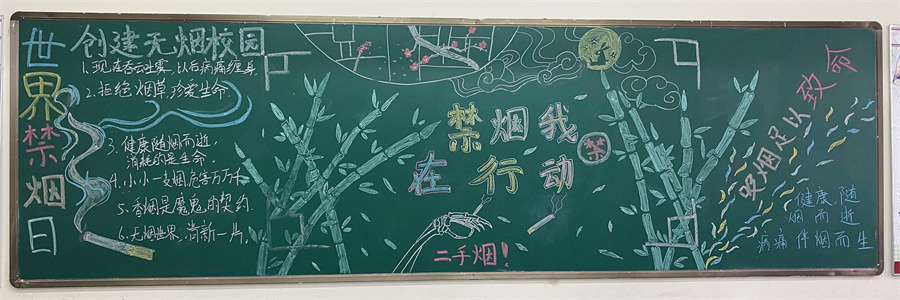 世界禁烟日
创建无烟校园
1、现在吞云吐雾，以后病痛缠身
2、拒绝烟草，珍爱生命
3、健康随烟而逝，
消耗的是生命.
4、小小一支烟危害万万千
5、香烟是魔鬼的契约.
6、无烟世界，清新一片，
禁烟我
在行动
禁
二手烟！
吸烟足以致命
健康随
烟而逝
病痛伴烟而生